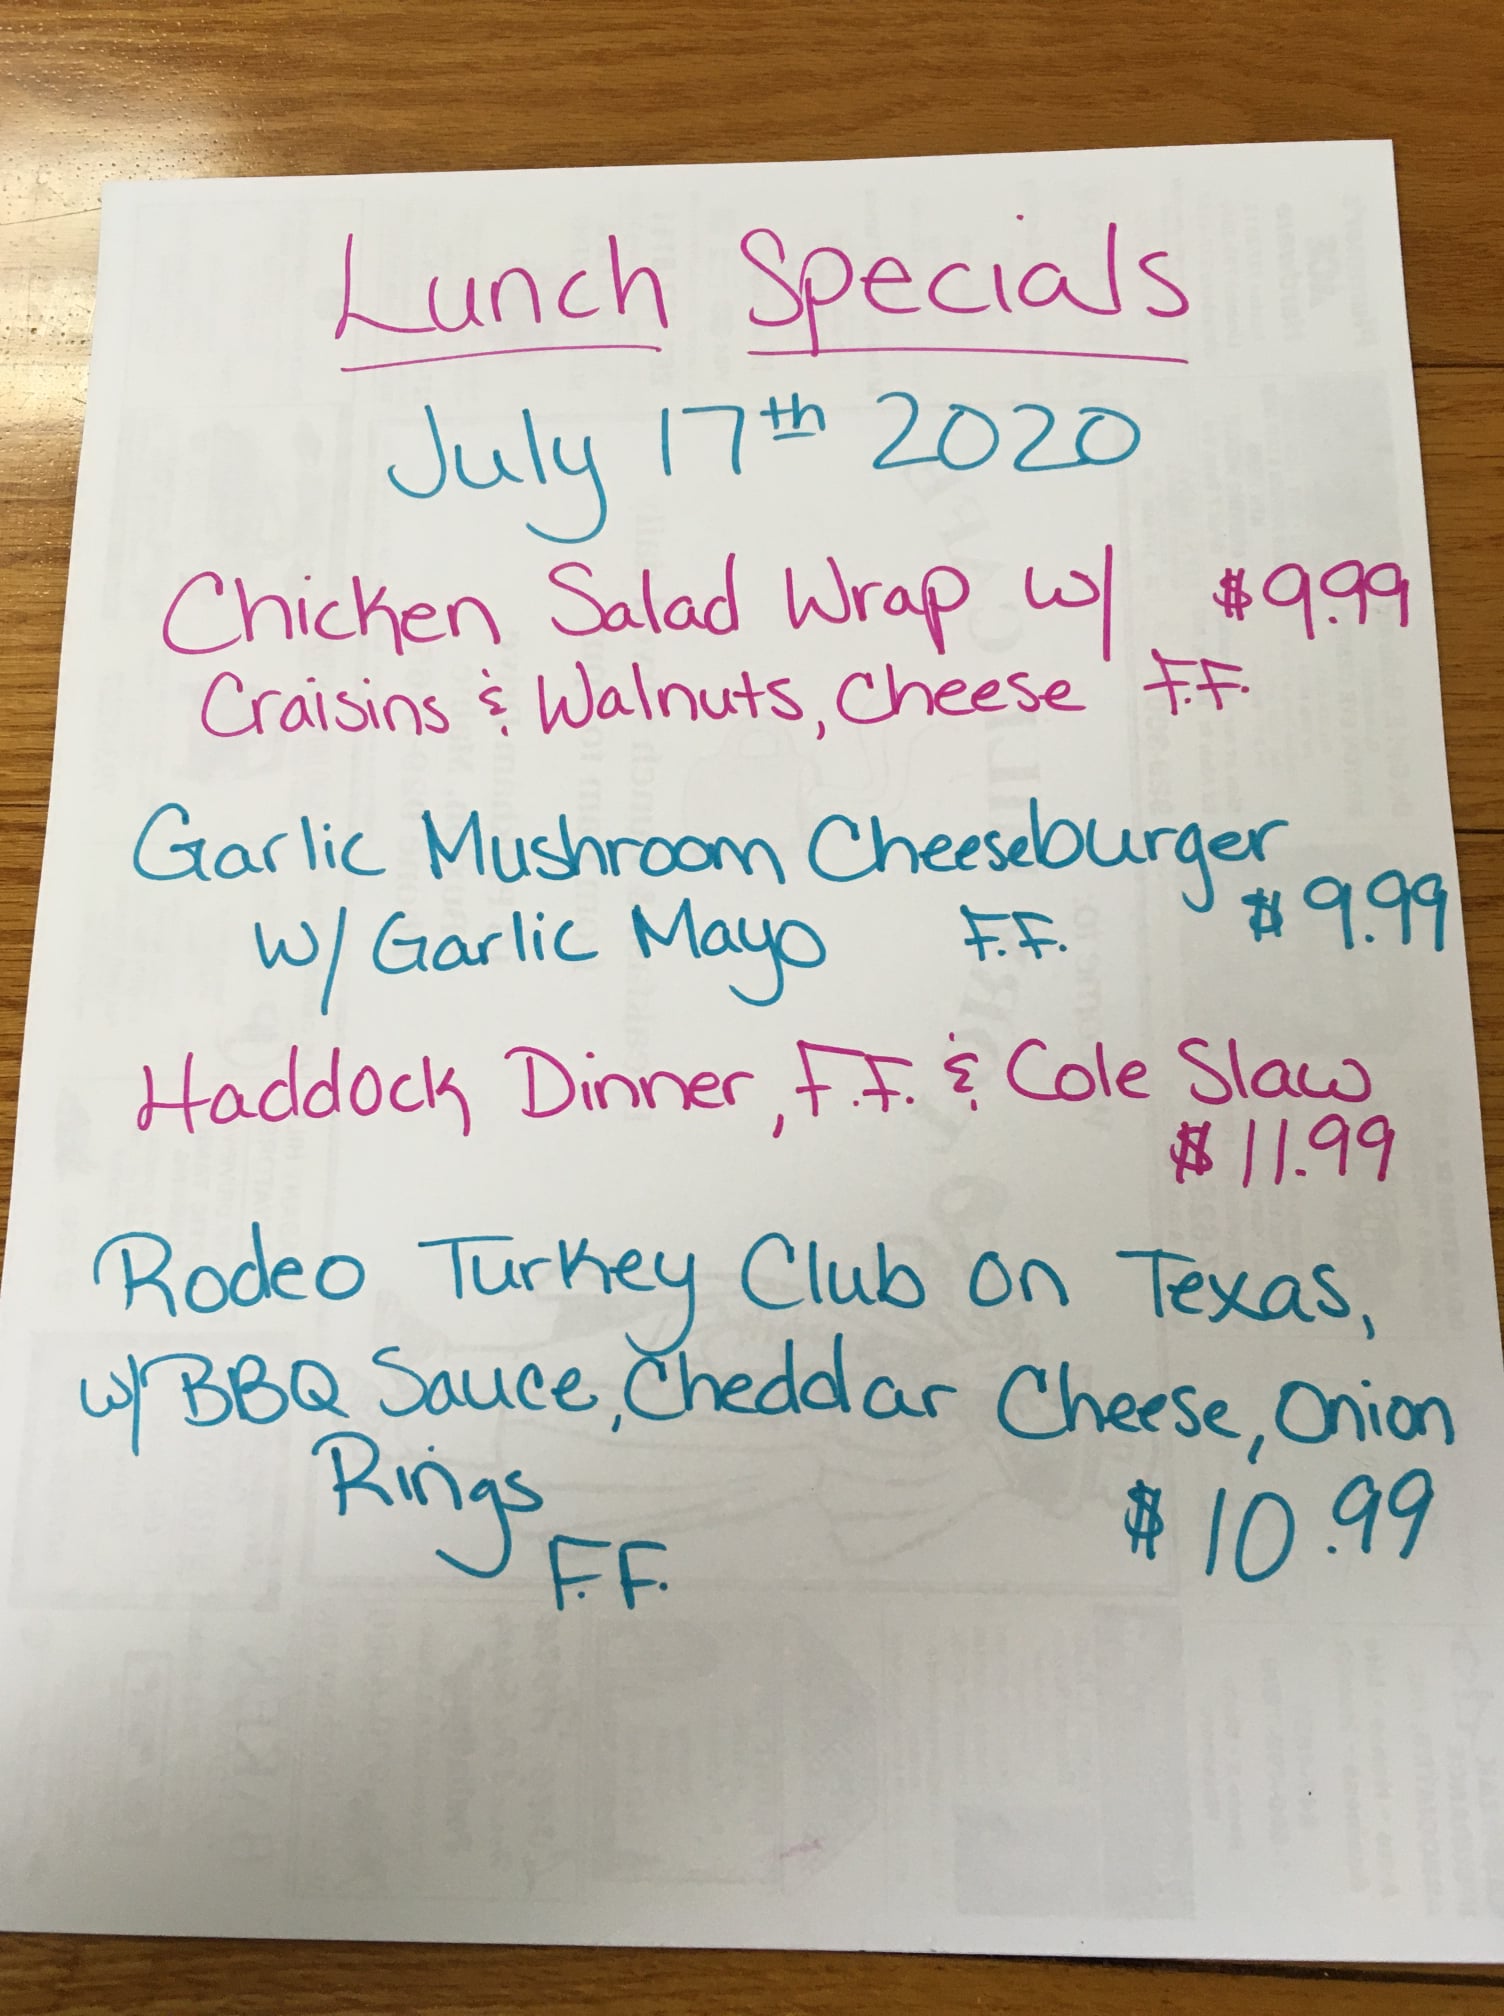 Lunch Specials
July 17th 2020
Chicken Salad Wrap w/ $9.99
Craisins & Walnuts, Cheese F.F.
Garlic Mushroom Cheeseburger
w/ Garlic Mayo F.F. $9.99
Haddock Dinner, F.F. & Cole Slaw
$11.99
Rodeo Turkey Club on Texas,
w/ BBQ Sauce, Cheddar Cheese, Onion
Rings $10.99
F.F.